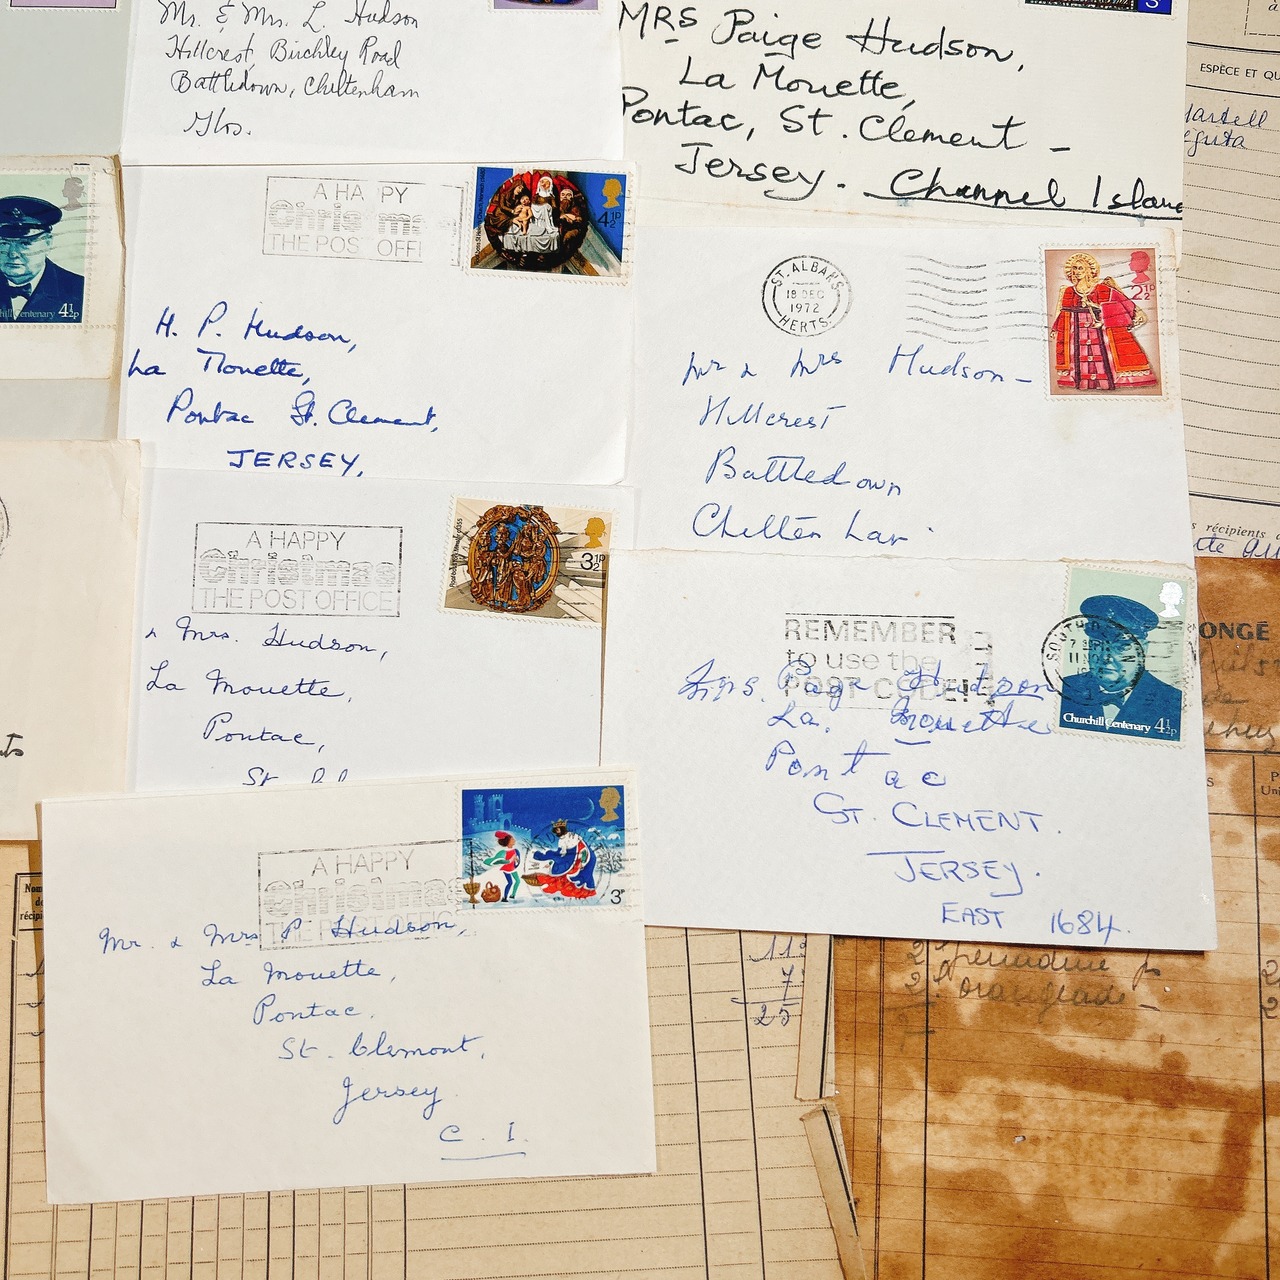 Mr. & Mrs. L. Hudson
Hillcrest, Birchley Road
Battledown, Cheltenham
Glos.
MRS Paige Hudson,
La Mouette,
Pontac, St. Clement -
Jersey. Channel Islan
ESPÈCE ET QU
4½P
A HA PY
Chris m
THE POST OFFI
4½P
H. P. Hudson,
La Mouette,
Pontac St. Clement,
JERSEY,
ST. ALBANS
18 DEC
1972
HERTS.
2½P
Mr & Mrs Hudson-
Hillcrest
Battledown
A HAPPY
Christmas
THE POST OFFICE
3½P
& Mrs. Hudson,
La Mouette,
Pontac,
St
récipients
REMEMBER
to use the
POST CODE!
Churchill Centenary 4½P
Mrs. Paige Hudson
La. Mouette
Pontac
ST. CLEMENT.
JERSEY.
EAST 1684.
ONGÉ
A HAPPY
Christmas
THE POST OFFIC
3P
Mr. & Mrs P. Hudson,
La Mouette,
Pontac.
St. Clement,
Jersey
C. I.
Nom
récipi
7
25
2 orangeade